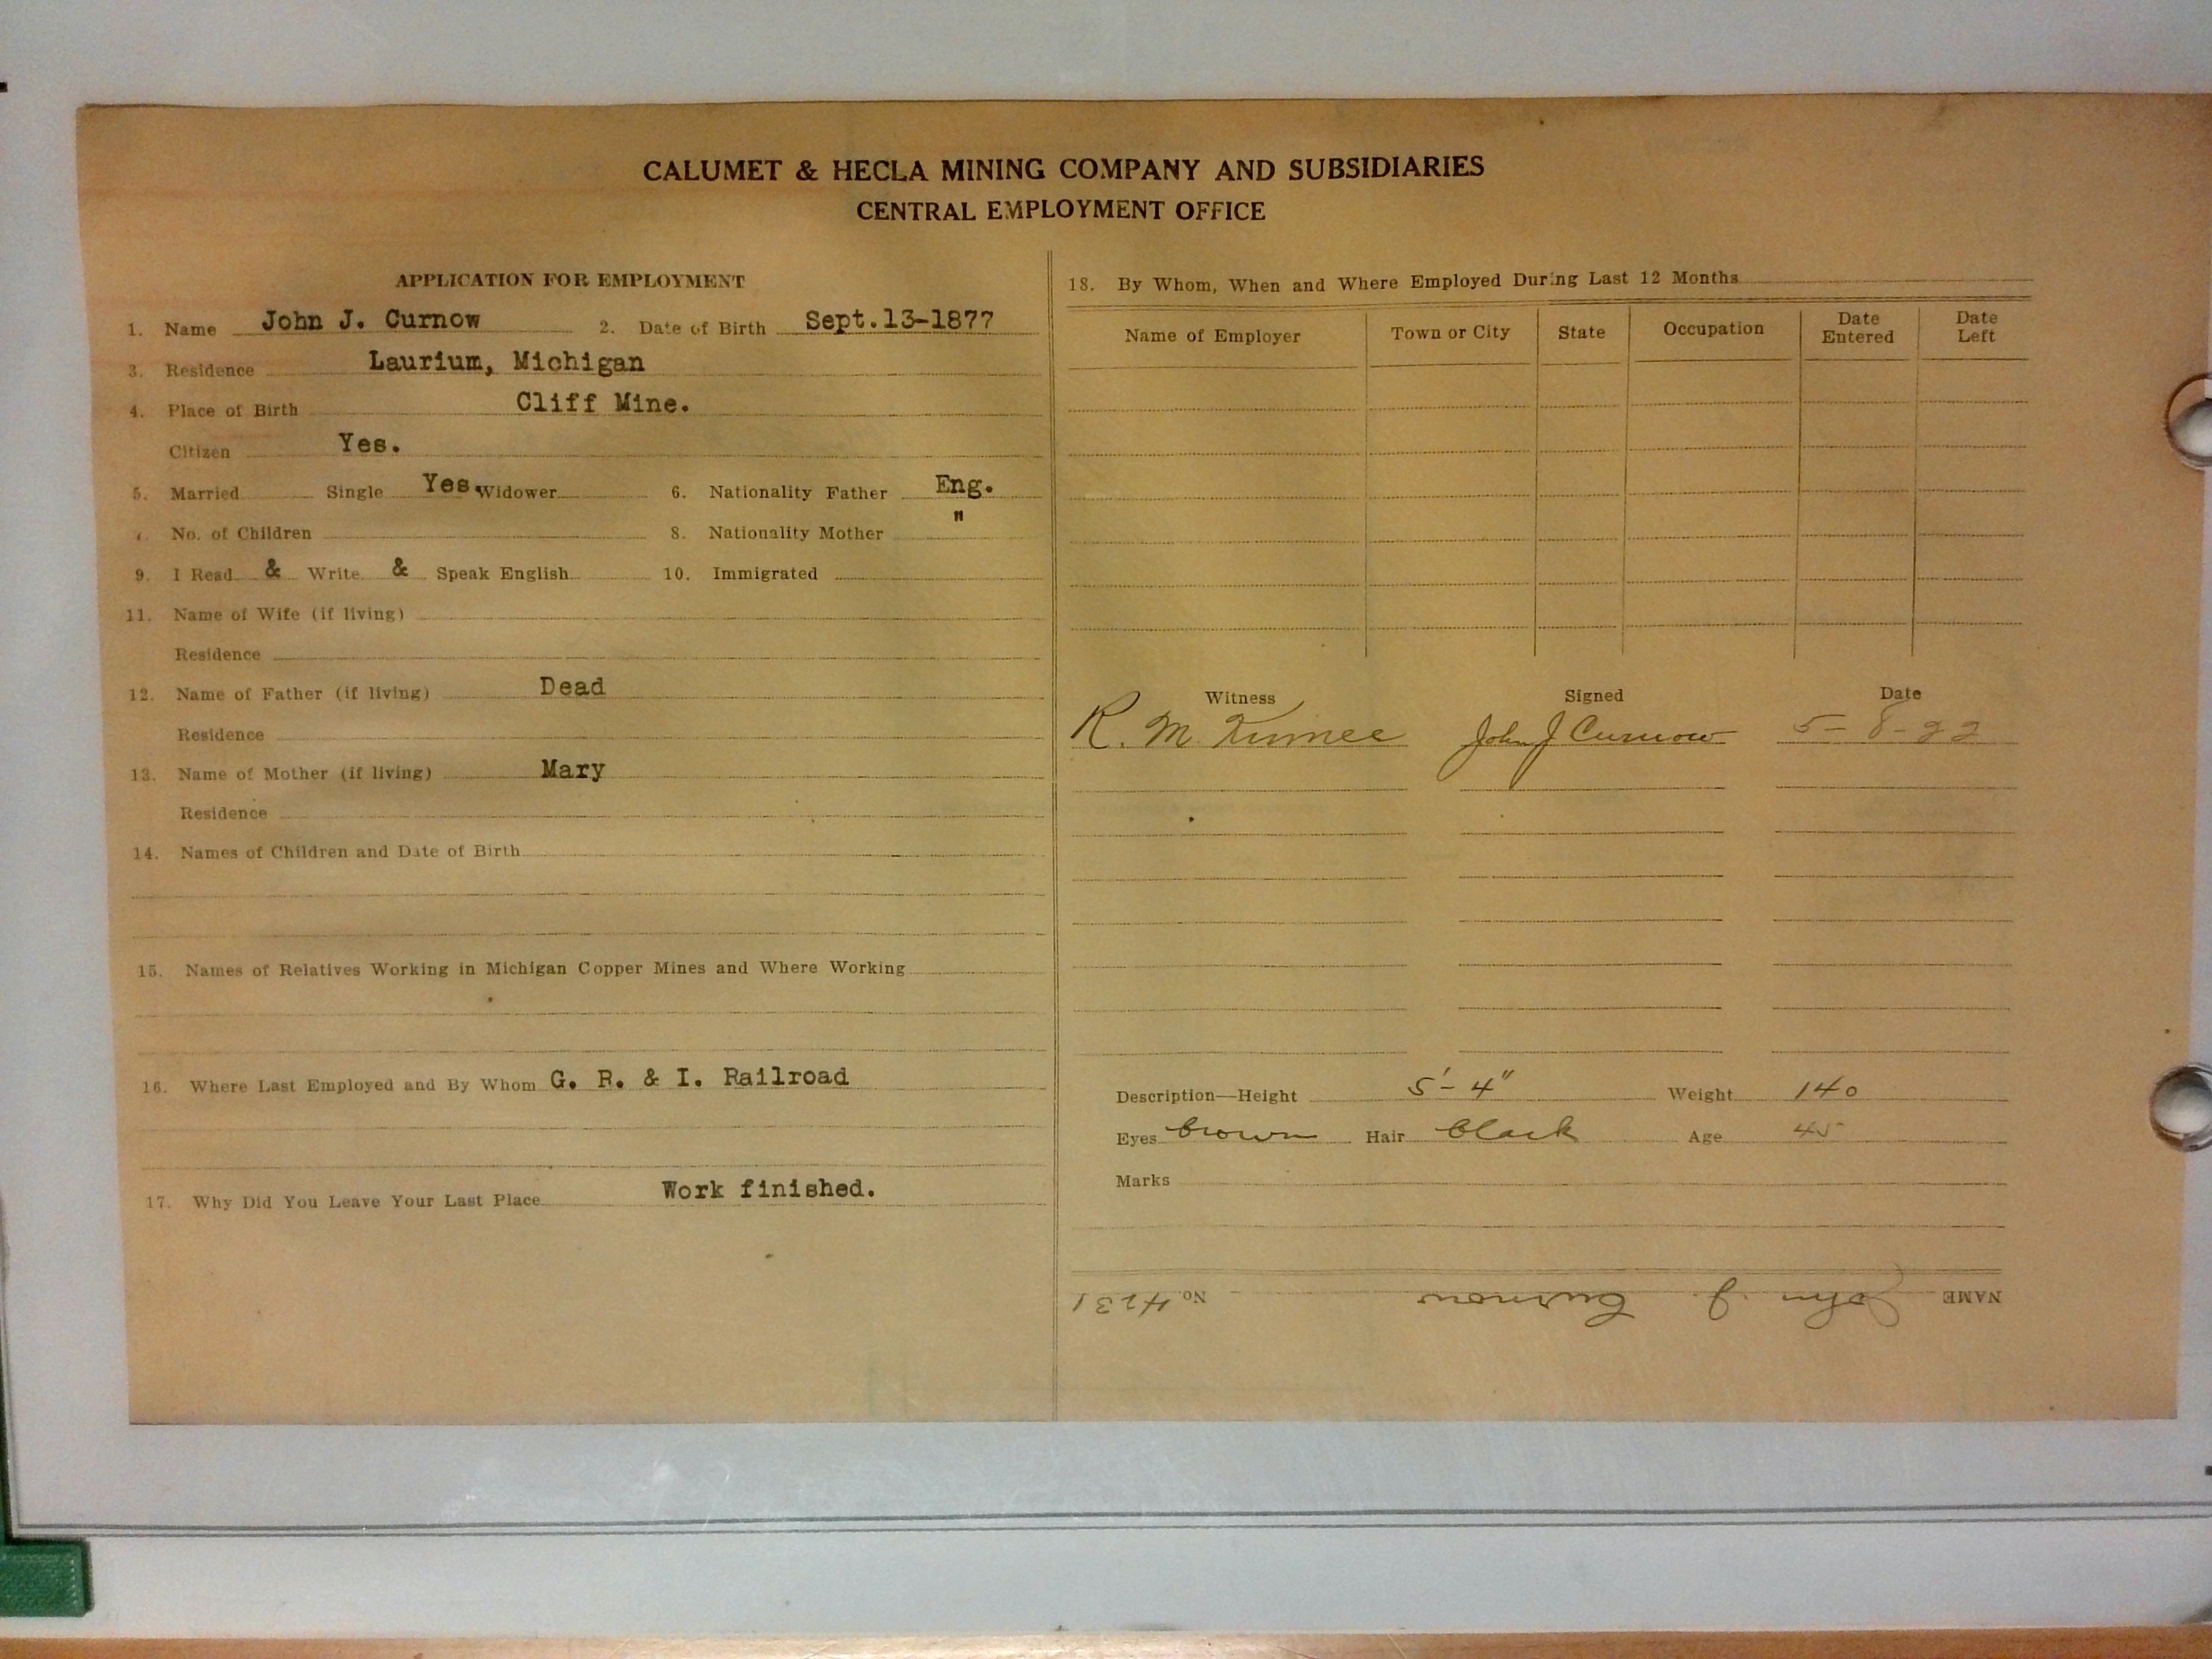 CALUMET & HECLA MINING COMPANY AND SUBSIDIARIES
CENTRAL EMPLOYMENT OFFICE
APPLICATION FOR EMPLOYMENT
1. Name John J. Curnow 2. Date of Birth Sept.13-1877
3. Residence Laurium, Michigan
4. Place of Birth Cliff Mine.
Citizen Yes.
5. Married Single Yes. Widower 6. Nationality Father Eng.
7. No. of Children 8. Nationality Mother "
9. I Read & Write & Speak English 10. Immigrated
11. Name of Wife (if living)
Residence
12. Name of Father (if living) Dead
Residence
13. Name of Mother (if living) Mary
Residence
14. Names of Children and Date of Birth
15. Names of Relatives Working in Michigan Copper Mines and Where Working
16. Where Last Employed and By Whom G. R. & I. Railroad
17. Why Did You Leave Your Last Place Work finished.
18. By Whom, When and Where Employed During Last 12 Months
Name of Employer Town or City State Occupation Date Entered Date Left
Witness Signed Date
R. M. John J Curnow 5-8-22
Description—Height 5'-4" Weight 140
Eyes brown Hair black Age 45
Marks
NAME John J. Curnow No. 4231